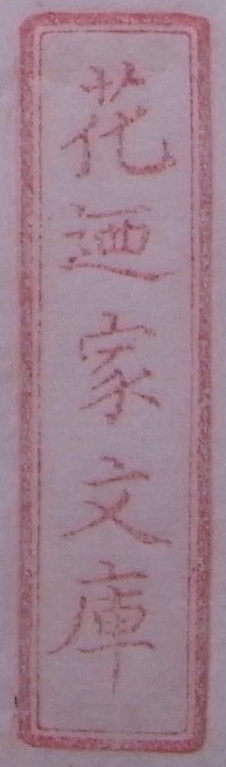 花廼家文庫